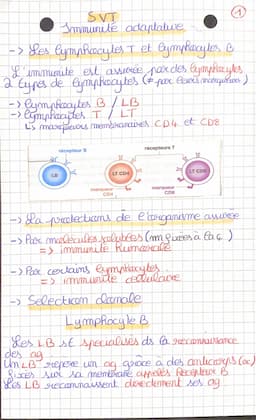 SVT
1
Immunité adaptative
-> Les lymphocytes T et lymphocytes B
L'immunité est assurée par des lymphocytes
2 types de lymphocytes (≠ par leurs marqueurs)
-> Lymphocytes B / LB
-> Lymphocytes T / LT
↳ marqueurs membranaires CD4 et CD8
récepteur B
récepteurs T
LB
LT CD4
LT CD8
marqueur CD4
marqueur CD8
-> La protections de l'organisme assurée
-> Par molécules solubles (non fixées à la c)
=> immunité humorale
-> Par certains lymphocytes
=> immunité cellulaire
-> Sélection clonale
Lymphocyte B
Les LB st spécialisés ds la reconnaissance
des ag
Un LB repère un ag grâce à des anticorps (ac)
fixés sur sa membrane appelés Récepteur B
Les LB reconnaissent directement ses ag